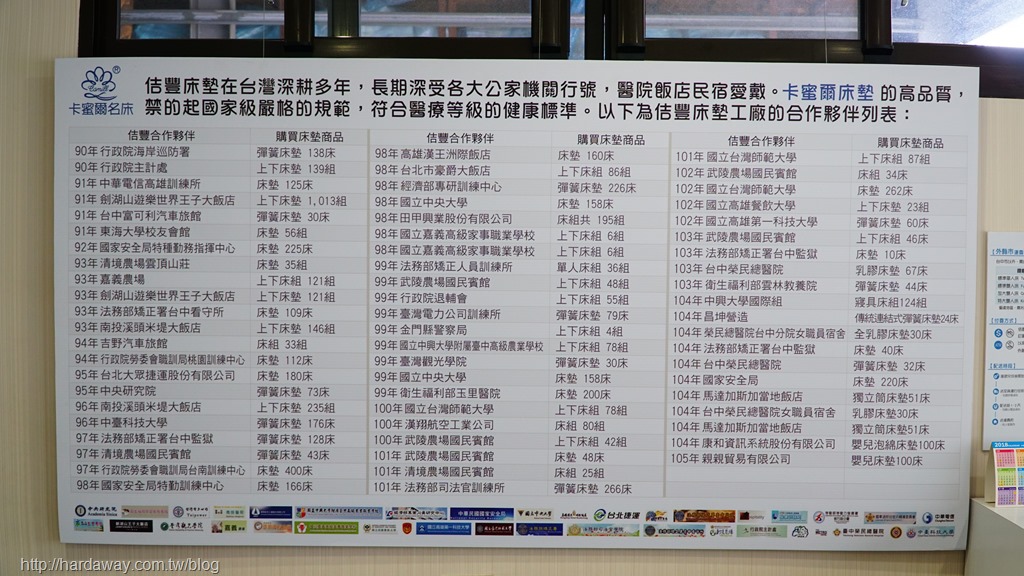 佶豐床墊在台灣深耕多年，長期深受各大公家機關行號，醫院飯店民宿愛戴。卡蜜爾床墊 的高品質，
禁的起國家級嚴格的規範，符合醫療等級的健康標準。以下為佶豐床墊工廠的合作夥伴列表：
卡蜜爾名床
佶豐合作夥伴 購買床墊商品
90年行政院海岸巡防署 彈簧床墊 138床
90年行政院主計處 上下床墊 139組
91年中華電信高雄訓練所 床墊 125床
91年劍湖山遊樂世界王子大飯店 上下床墊 1,013組
91年台中富可利汽車旅館 彈簧床墊 30床
91年東海大學校友會館 床墊 56組
92年國家安全局特種勤務指揮中心 床墊 225床
93年清境農場雲頂山莊 床墊 35組
93年嘉義農場 上下床組 121組
93年劍湖山遊樂世界王子大飯店 上下床墊 121組
93年法務部矯正署台中看守所 床墊 109床
93年南投溪頭米堤大飯店 上下床墊 146組
94年吉野汽車旅館 床組 33組
94年行政院勞委會職訓局桃園訓練中心 床墊 112床
95年台北大眾捷運股份有限公司 床墊 180床
95年中央研究院 彈簧床墊 73床
96年南投溪頭米堤大飯店 上下床墊 235組
96年中臺科技大學 彈簧床墊 176床
97年法務部矯正署台中監獄 彈簧床墊 128床
97年清境農場國民賓館 彈簧床墊 43床
97年行政院勞委會職訓局台南訓練中心 床墊 400床
98年國家安全局特勤訓練中心 床墊 166床
佶豐合作夥伴 購買床墊商品
98年高雄漢王洲際飯店 床墊 160床
98年台北市豪爵大飯店 上下床組 86組
98年經濟部專研訓練中心 彈簧床墊 226床
98年國立中央大學 床墊 158床
98年田甲興業股份有限公司 床組共 195組
98年國立嘉義高級家事職業學校 上下床組 6組
98年國立嘉義高級家事職業學校 上下床組 6組
99年法務部矯正人員訓練所 單人床組 36組
99年武陵農場國民賓館 上下床組 48組
99年行政院退輔會 上下床組 55組
99年臺灣電力公司訓練所 彈簧床墊 79床
99年金門縣警察局 上下床組 4組
99年國立中興大學附屬臺中高級農業學校 上下床組 78組
99年臺灣觀光學院 彈簧床墊 30床
99年國立中央大學 床墊 158床
99年衛生福利部玉里醫院 床墊 200床
100年國立台灣師範大學 上下床組 78組
100年漢翔航空工業公司 床組 80組
100年武陵農場國民賓館 上下床組 42組
101年武陵農場國民賓館 床墊 48床
101年清境農場國民賓館 床組 25組
101年法務部司法官訓練所 彈簧床墊 266床
佶豐合作夥伴 購買床墊商品
101年國立台灣師範大學 上下床組 87組
102年武陵農場國民賓館 床組 34床
102年國立台灣師範大學 床墊 262床
102年國立高雄餐飲大學 上下床墊 23組
102年國立高雄第一科技大學 彈簧床墊 60床
103年武陵農場國民賓館 上下床組 46床
103年法務部矯正署台中監獄 床墊 10床
103年台中榮民總醫院 乳膠床墊 67床
103年衛生福利部雲林教養院 彈簧床墊 44床
104年中興大學國際組 寢具床組124組
104年昌坤營造 傳統連結式彈簧床墊24床
104年榮民總醫院台中分院女職員宿舍 全乳膠床墊30床
104年法務部矯正署台中監獄 床墊 40床
104年台中榮民總醫院 彈簧床墊 32床
104年國家安全局 床墊 220床
104年馬達加斯加當地飯店 獨立筒床墊51床
104年台中榮民總醫院女職員宿舍 乳膠床墊30床
104年馬達加斯加當地飯店 獨立筒床墊51床
104年康和資訊系統股份有限公司 嬰兒泡綿床墊100床
105年親親貿易有限公司 嬰兒床墊100床
台北捷運
中華電信
http://hardaway.com.tw/blog